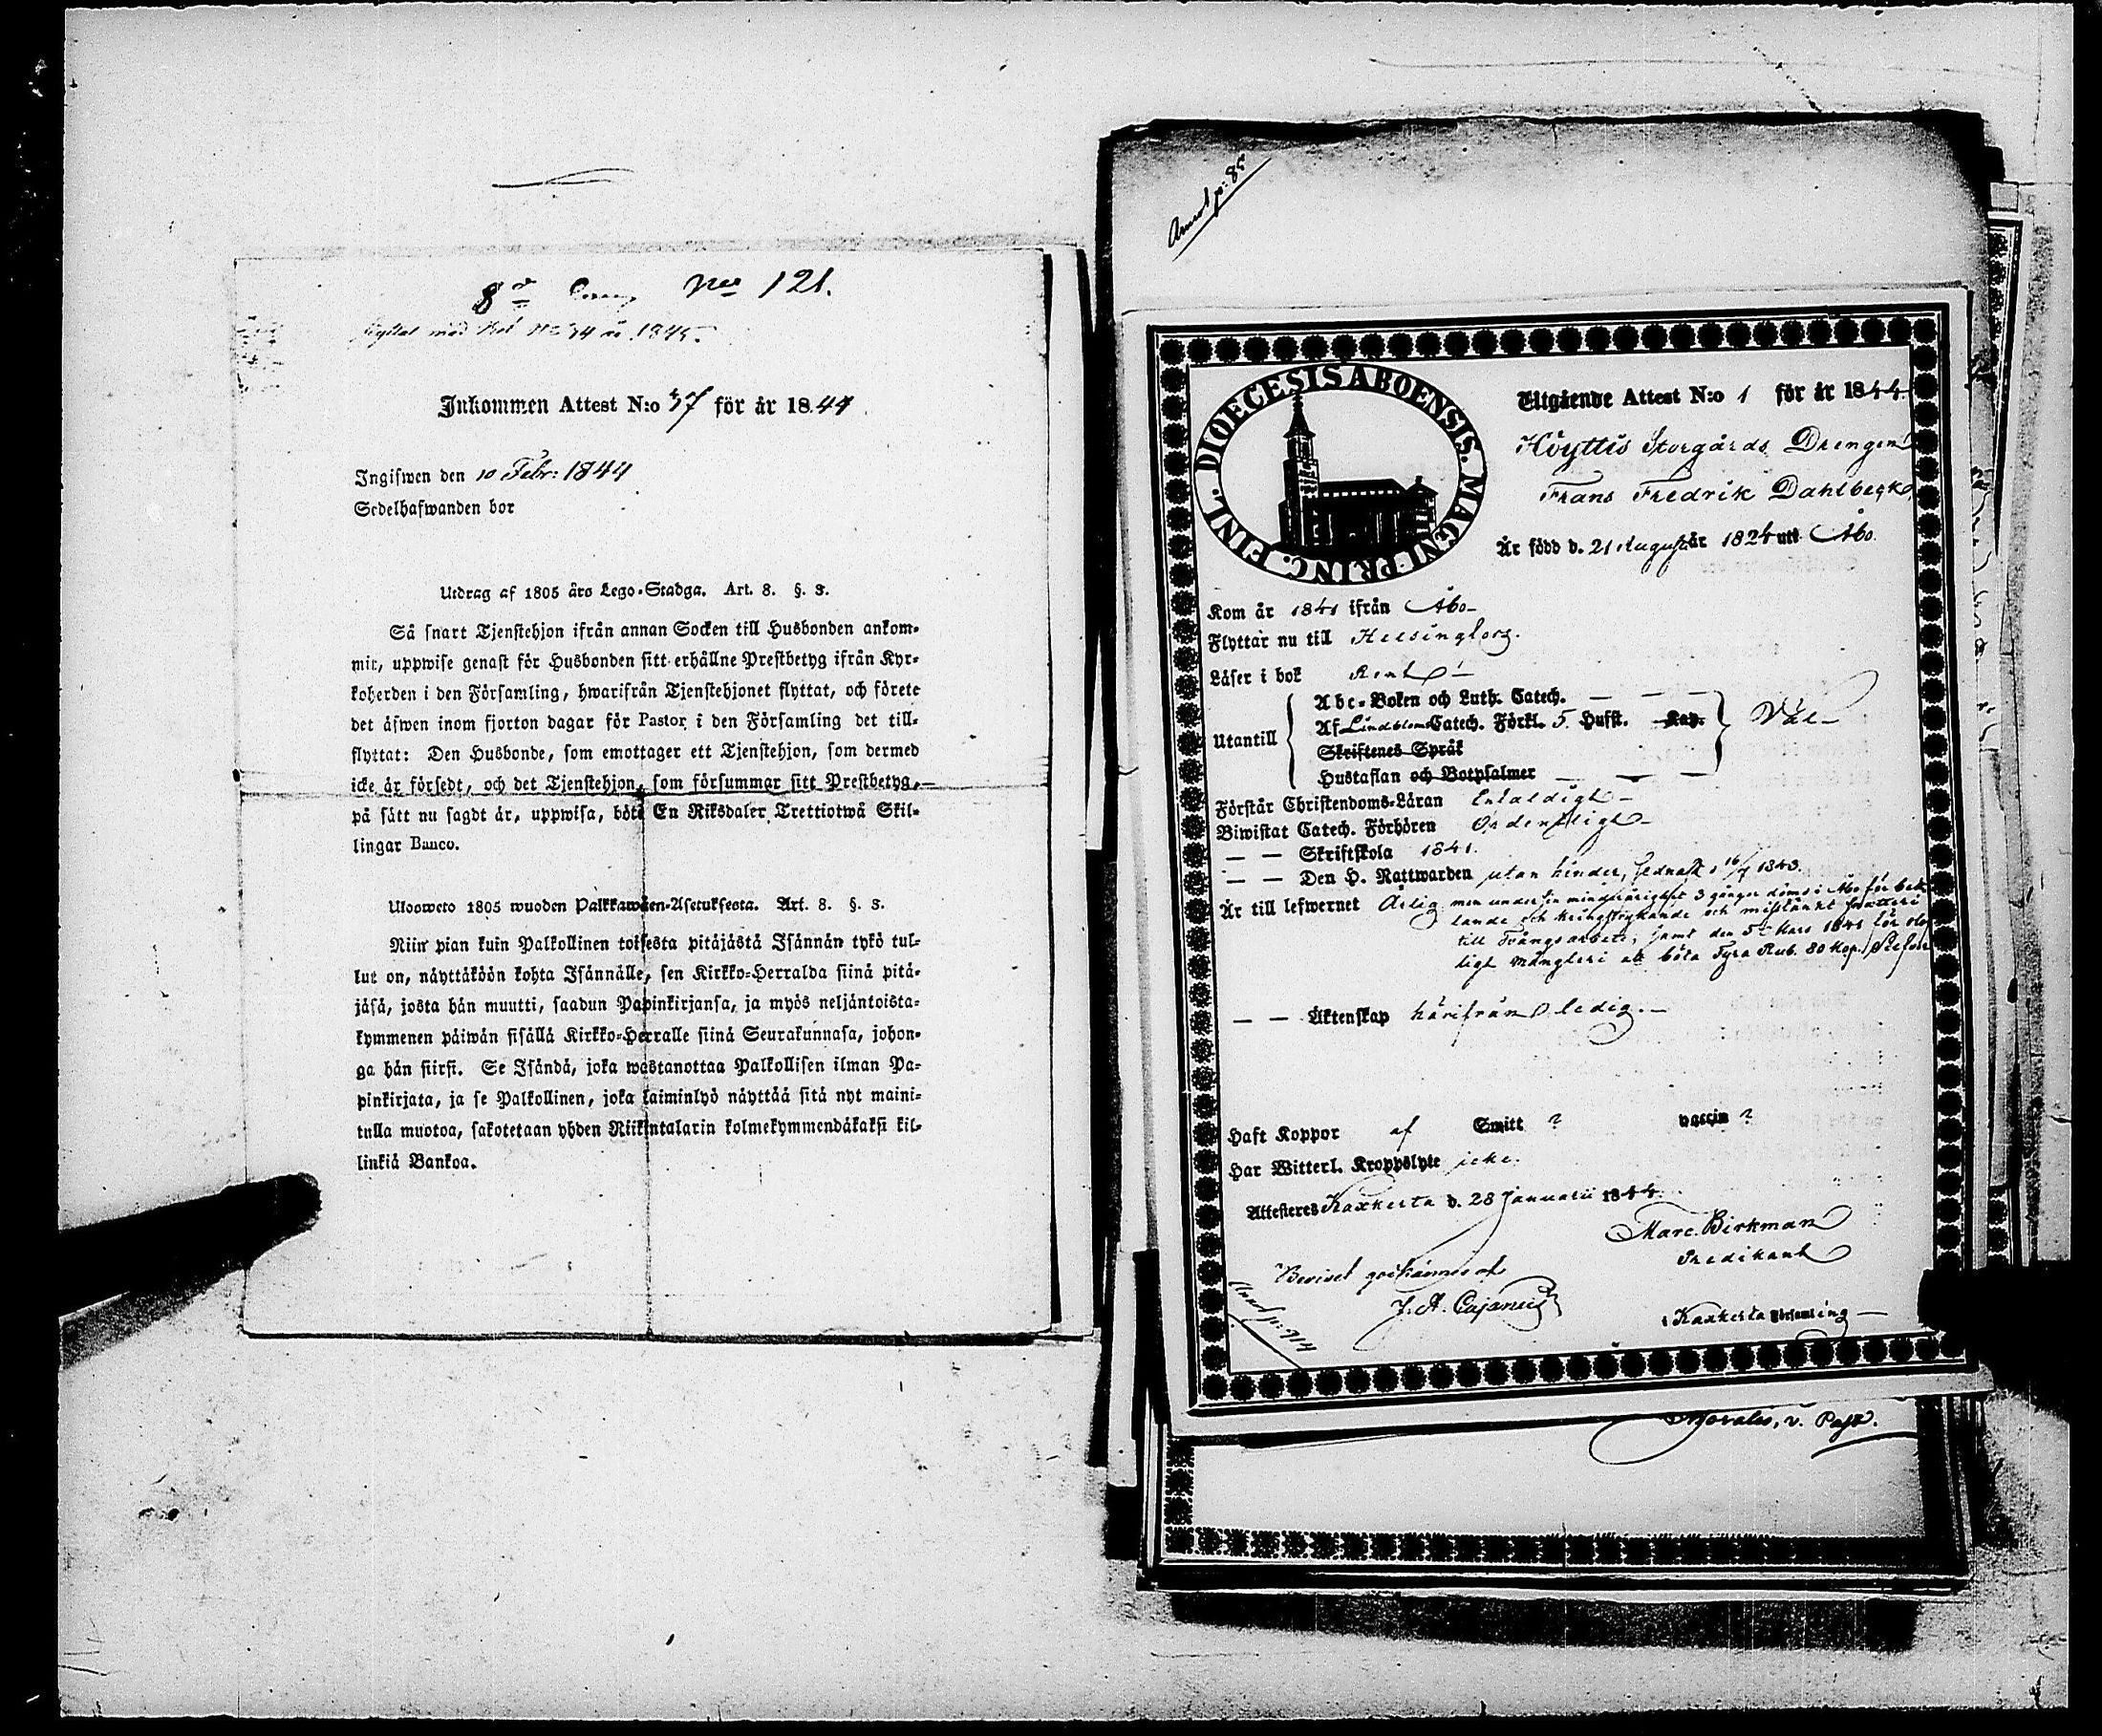 8de Comp No 121.
flyttat med Bet No 74 år 1845.
Inkommen Attest N:o 37 för år 1844
Ingifwen den 10 Febr: 1844
Sedelhafwanden bor
Utdrag af 1805 års Lego-Stadga. Art. 8. §. 3.
Så snart Tjenstehjon ifrån annan Socken till Husbonden ankom-
mit, uppwise genast för Husbonden sitt erhållne Prestbetyg ifrån Kyr-
koherden i den Församling, hwarifrån Tjenstehjonet flyttat, och förete
det åfwen inom fjorton dagar för Pastor i den Församling det till-
flyttat: Den Husbonde, som emottager ett Tjenstehjon, som dermed
icke år försedt, och det Tjenstehjon, som försummar sitt Prestbetyg,
på sätt nu sagdt år, uppwisa, böte En Riksdaler Trettiotwå Skil-
lingar Banco.
Ulosweto 1805 wuoden Palkkawäen-Asetuksesta. Art. 8. §. 3.
Niin pian kuin Palkollinen toisesta pitäjästä Isännän tykö tul-
lut on, näyttäköön kohta Isännälle, sen Kirkko-Herralda siinä pitä-
jäsä, josta hän muutti, saadun Papinkirjansa, ja myös neljäntoista-
kymmenen päiwän sisällä Kirkko-Herralle siinä Seurakunnasa, johon-
ga hän siirsi. Se Isändä, joka wastanottaa Palkollisen ilman Pa-
pinkirjata, ja se Palkollinen, joka laiminlyö näyttää sitä nyt maini-
tulla muotoa, sakotetaan yhden Riikintalarin kolmekymmendäkaksi kil-
linkiä Bankoa.
Annot p: 85
DIOECESIS ABOENSIS. MAGNI PRINC. FINL.
Utgående Attest N:o 1 för år 1844.
Höyttis Storgårds Drengen
Frans Fredrik Dahlbeck
Är född d. 21 Augusti år 1824 uti Åbo.
Kom år 1841 ifrån Åbo
Flyttar nu till Helsingfors.
Läser i bok Rent
Utantill
Abc-Boken och Luth. Catech.
Af Lindbloms Catech. Förkl. 5. Hufst. Kap.
Skriftenes Språk
Hustaflan och Botpsalmer
Väl
Förstår Christendoms-Läran Enfaldigt
Biwistat Catech. Förhören Ordentligt
Skriftskola 1841.
Den H. Nattwarden utan hinder, sednast 16/7 1843.
Är till lefwernet Ärlig men under sin minderårighet 3 gånger dömd i Åbo för bett
lande och kringstrykande och misstänkt snatteri
till Tvångsarbete, samt den 5te Mars 1841 för olof
ligt mångleri att böta Fyra Rub. 80 Kop. Silfver
Äktenskap härifrån ledig.
Haft Koppor af Smitt ? vaccin ?
Har Witterl. Kroppslyte icke.
Attesteres Kaxkerta d. 28 Januarii 1844.
Marc. Birkman
Predikant
i Kaxkerta Församling
Beviset godkännes af
J. A. Cajanus
Annot p: 714
v. Past.